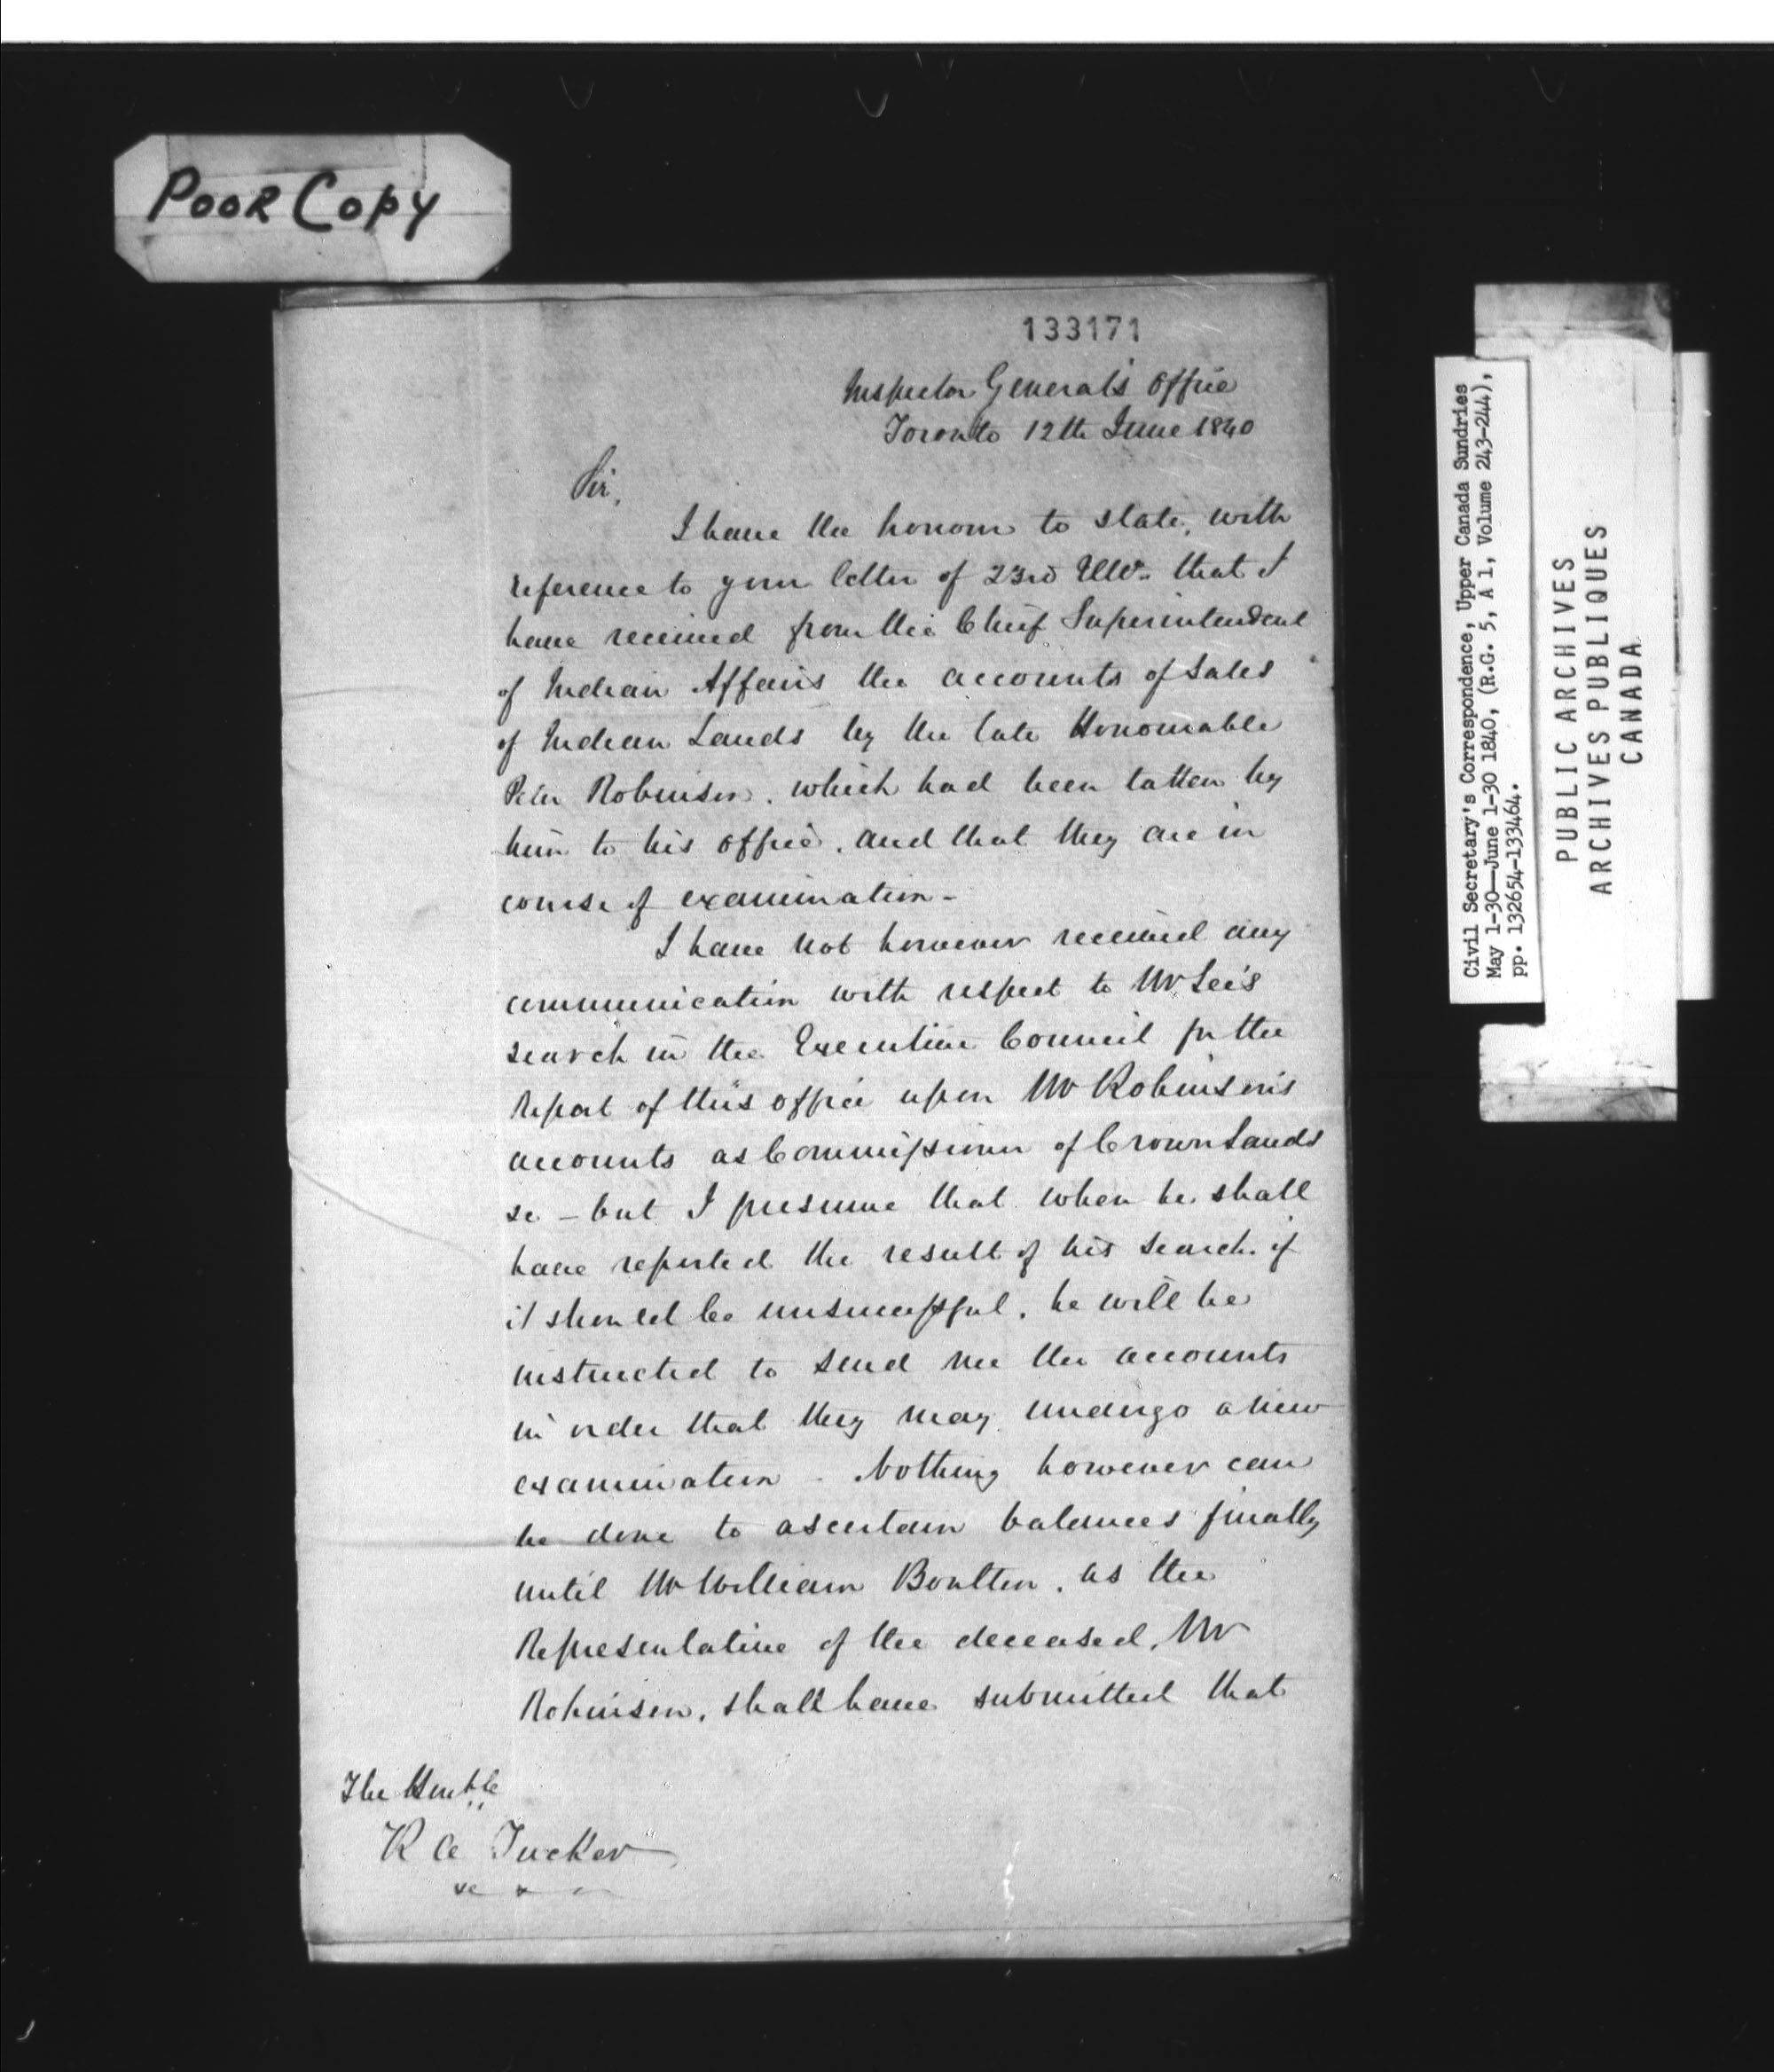 POOR COPY
133171
Inspector General's Office
Toronto 12th June 1840
Sir,
I have the honour to state, with
reference to your letter of 23rd Ulto. that I
have received from the Chief Superintendent
of Indian Affairs the accounts of Sales
of Indian Lands by the late Honourable
Peter Robinson, which had been taken by
him to his office, and that they are in
course of examination -
I have not however received any
communication with respect to Mr Lee's
search in the Executive Council for the
Report of this office upon Mr Robinson's
accounts as Commissioner of Crown Lands
&c - but I presume that when he shall
have reported the result of his search, if
it should be unsuccessful, he will be
instructed to send me the accounts
in order that they may undergo a new
examination - Nothing however can
be done to ascertain balances finally
until Mr William Boulton, as the
Representative of the deceased, Mr
Robinson, shall have submitted that
The Honble
R A Tucker
&c
Civil Secretary's Correspondence, Upper Canada Sundries
May 1-30—June 1-30 1840, (R.G. 5, A 1, Volume 243-244),
pp. 132654-133464.
PUBLIC ARCHIVES
ARCHIVES PUBLIQUES
CANADA